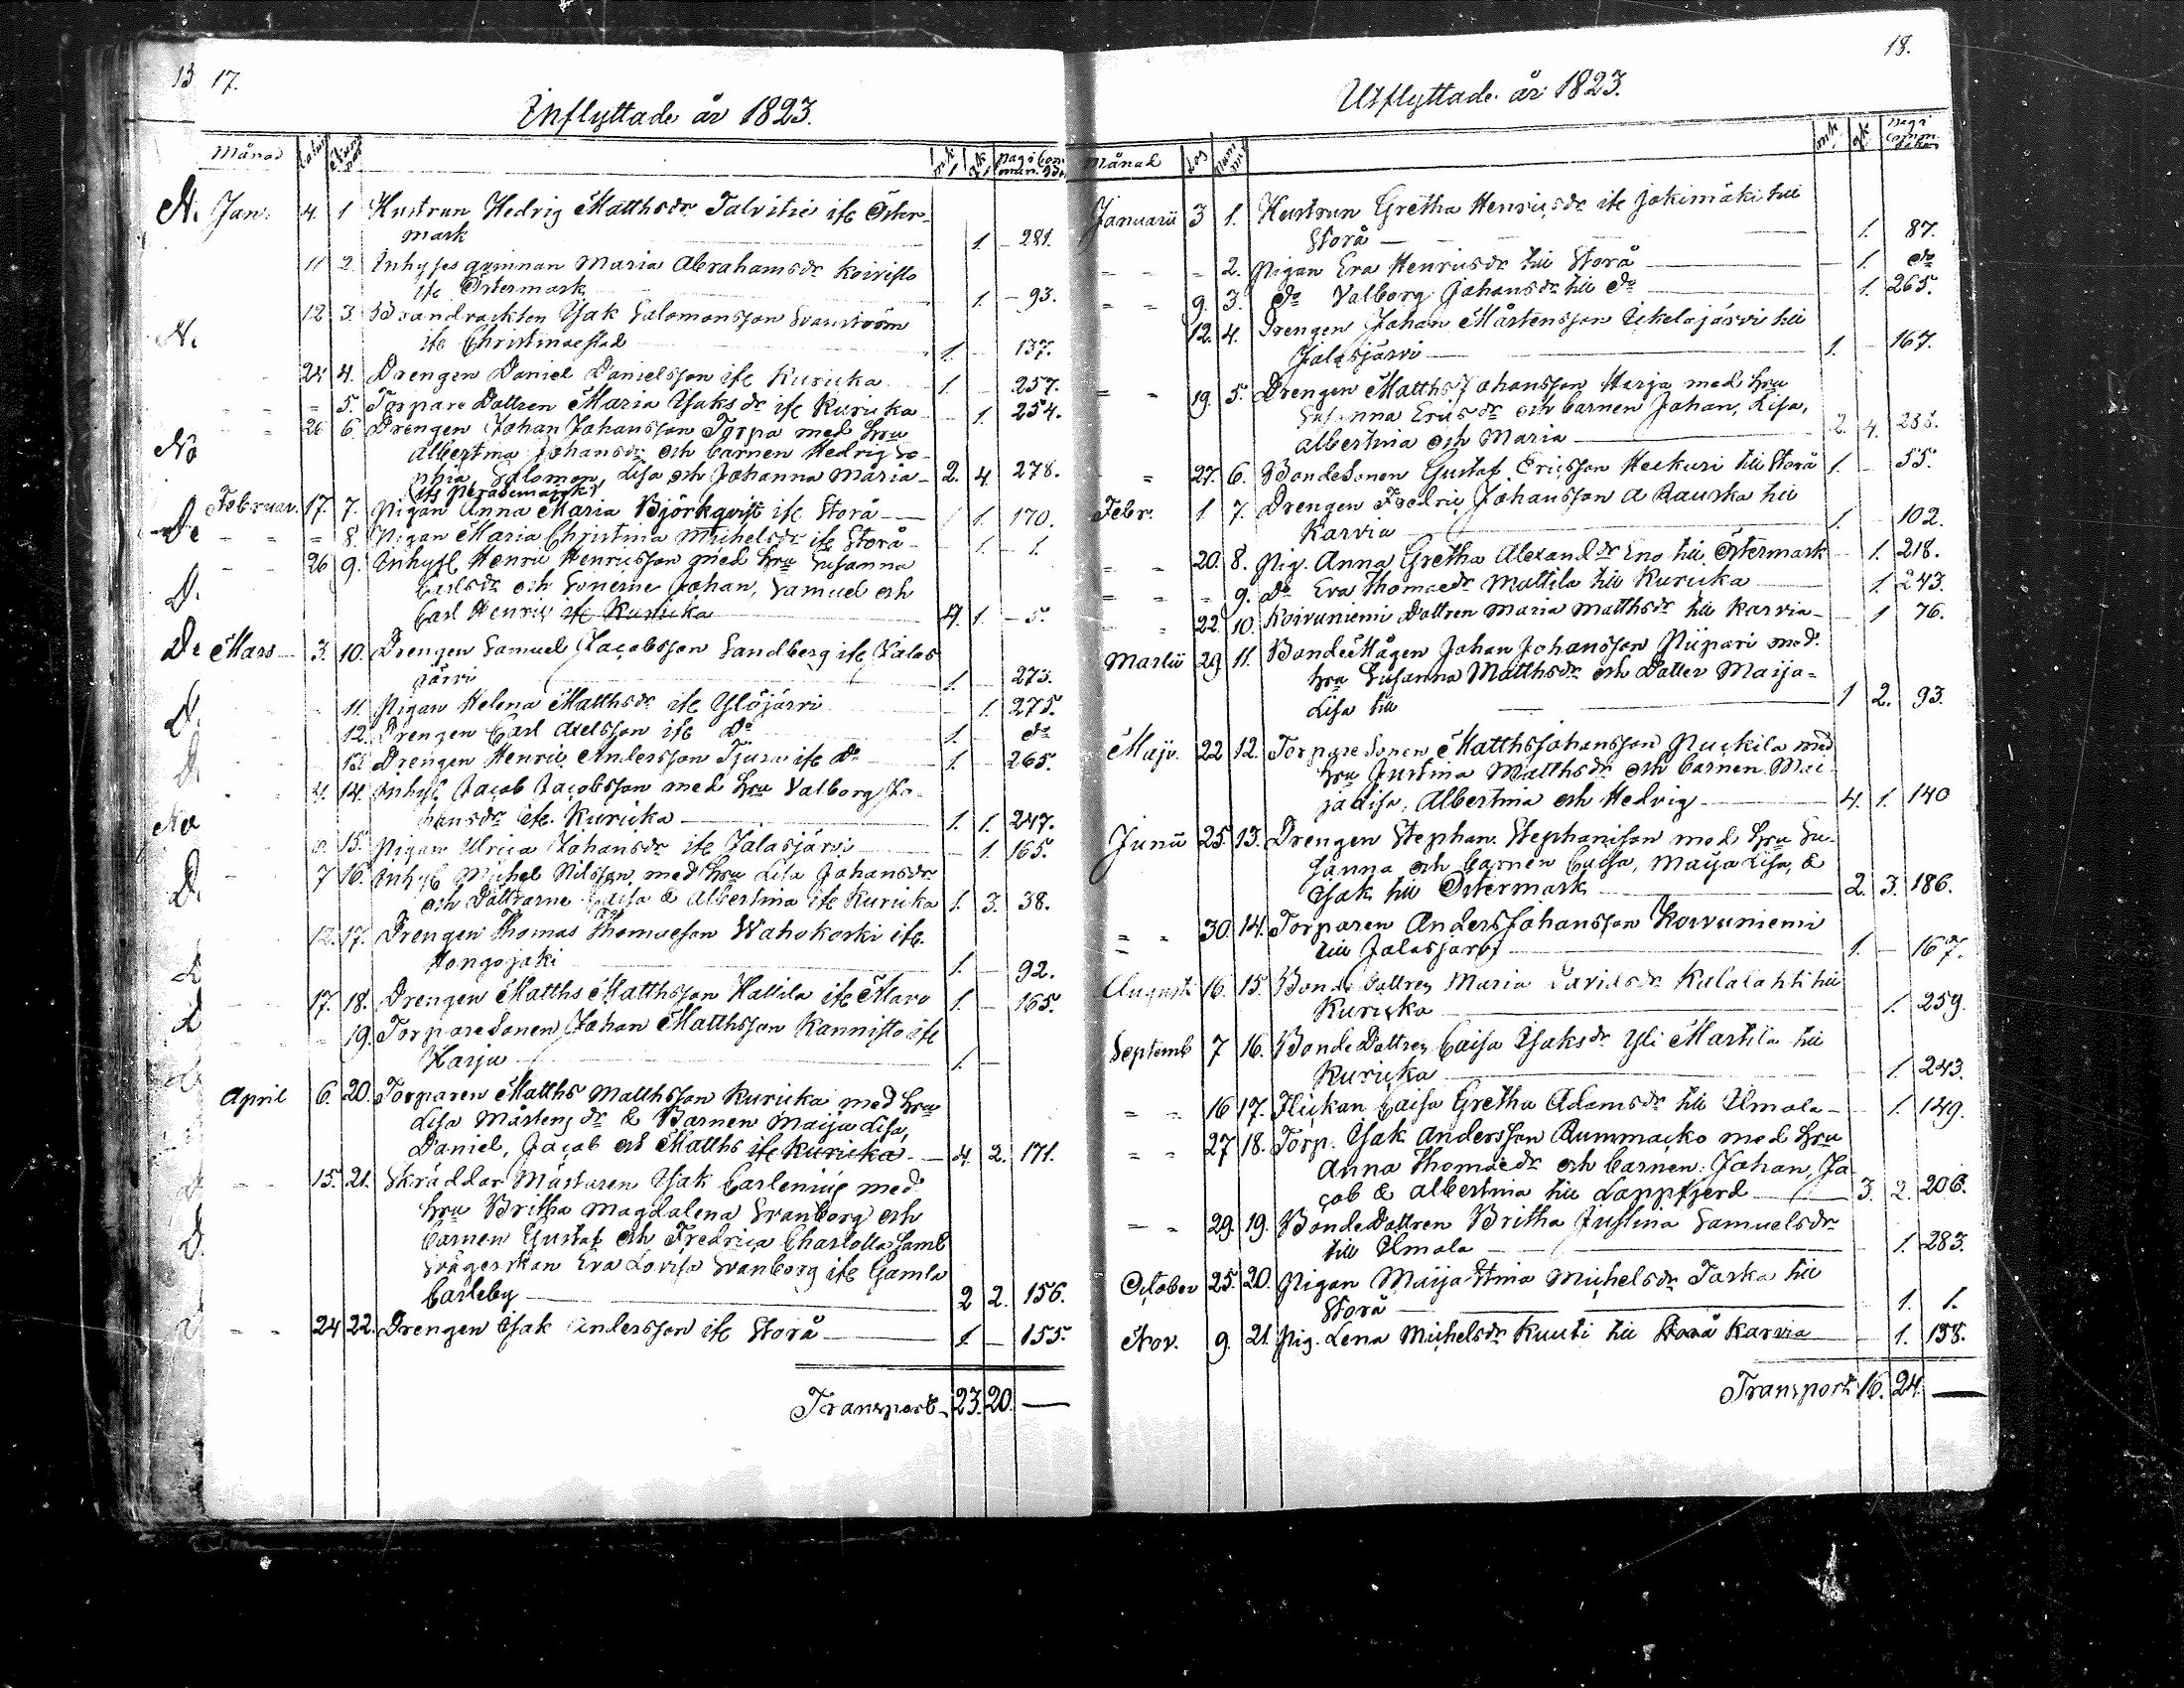 17.
Inflyttade år 1823.
Månad
Jan. 4. 1 Hustrun Hedrig Matthsdr Talvitie ifr Öster-
mark 1. 281.
11 2. Inhyses qvinnan Maria Abrahamsdr Koivisto
ifr Östermark 1. 93.
12 3. Isak Salomonsson Svanström
ifr Christinaestad 1. 137.
24 4. Drengen Daniel Danielsson ifr Kuricka 1. 257.
5. Torpare Dottren Maria Isaksdr ifr Kuricka 1. 254.
26 6. Drengen Johan Johansson Torpa med hru
Albertina Johansdr och barnen Hedrig So-
phia, Salomon, Lisa och Johanna Maria 2. 4 278.
Februar. 17. 7. Pigan Anna Maria Björkqvist ifr Storå 1. 170.
8. Pigan Maria Christina Michelsdr ifr Storå 1. 1.
26 9. Inhys. Henric Henricsson med hru Susanna
Carlsdr och Sonerne Johan, Samuel och
Carl Henric ifr Kuricka 4. 1. 5.
Mars 3. 10. Drengen Samuel Jacobsson Sandberg ifr Jalas
järvi 1. 273.
11. Pigan Helena Matthsdr ifr Ylöjärvi 1. 275.
12. Drengen Carl Axelsson ifr Do 1. do
13. Drengen Henric Andersson ifr Do 1. 265.
4. 14. Inhys. Jacob Jacobsson med hru Valborg Jo-
hansdr ifr Kuricka 1. 1. 247.
15. Pigan Ulrica Johansdr ifr Jalasjärvi 1. 165.
7 16. Inhys Michel Nilsson med hru Lisa Johansdr
och Döttrarne Caisa & Albertina ifr Kuricka 1. 3. 38.
12. 17. Drengen Thomas Thomaeson Wahokoski ifr
Hongojoki 1. 92.
17. 18. Drengen Matths Matthsson Hattila ifr 1. 165.
19. TorpareSonen Johan Matthsson Kannisto ifr
Harju 1.
April 6. 20. Torparen Matths Matthsson Kuricka med hru
Lisa Mårtensdr & Barnen Maija Lisa,
Daniel, Jacob och Matths ifr Kuricka 4. 2. 171.
15. 21. Skräddar Mästaren Isak Carlenius med
hru Britha Magdalena Svanborg och
barnen Gustaf och Fredrica Charlotta samt
Svägerskan Eva Lovisa Svanborg ifr Gamla
Carleby 2 2. 156.
24 22. Drengen Isak Andersson ifr Storå 1 155.
Transport 23. 20.
18.
Utflyttade år 1823.
Månad
Januarii 3 1. Hustrun Gretha Henricsdr ifr Jokimäki till
Storå 1. 87.
2. Pigan Eva Henricsdr till Storå 1. do
9. 3. do Valborg Johansdr till do 1. 265.
12. 4. Drengen Johan Mårtensson Ikelajärvi till
Jalasjärvi 1. 167.
19. 5. Drengen Matths Johansson Harja med hru
Susanna Ericsdr och barnen Johan, Lisa,
Albertina och Maria 2. 4. 235.
27. 6. BondeSonen Gustaf Ericsson Heckuri till Storå 1. 55.
Febr. 1. 7. Drengen Fredric Johansson a Rauska till
Karvia 1. 102.
20. 8. Pig. Anna Gretha Alexandr Eno till Östermark 1. 218.
9. Do Eva Thomaedr Mattila till Kuricka 1. 243.
22. 10. Koivuniemi Dottren Maria Matthsdr till Karvia 1 76.
Martii 29 11. BondeMågen Johan Johansson Piipari med
hru Susanna Matthsdr och Dotter Maija-
Lisa till 1 2. 93.
Maji. 22 12. TorpareSonen Matths Johansson Pluckila med
hru Justina Matthsdr och barnen Mai-
ja Lisa, Albertina och Hedrig 4. 1. 140
Junii 25. 13. Drengen Stephan Stephanisson med hru Su-
sanna och barnen Caisa, Maija Lisa, &
Isak till Östermark 2. 3. 186.
30. 14. Torparen Anders Johansson Koivuniemi
till Jalasjärvi 1. 167.
Augusti 16. 15. BondeDottren Maria Davidsdr Kalalahti till
Kuricka 1. 259.
Septemb 7 16. BondeDottren Caisa Isaksdr Yli Martila till
Kuricka 1. 243.
16 17. Flickan Caisa Gretha Adamsdr till Ilmola 1. 149.
27 18. Torp. Isak Andersson Rummacko med hru
Anna Thomaedr och barnen: Johan, Ja-
cob & Albertina till Lappfjerd 3. 2. 206.
29. 19. BondeDottren Britha Justina Samuelsdr
till Ilmola 1. 283.
October 25. 20. Pigan Maija Stina Michelsdr Taska till
Storå 1. 1.
Nov. 9. 21. Pig. Lena Michelsdr Kuuti till Storå Karvia 1. 158.
Transport 16. 24.